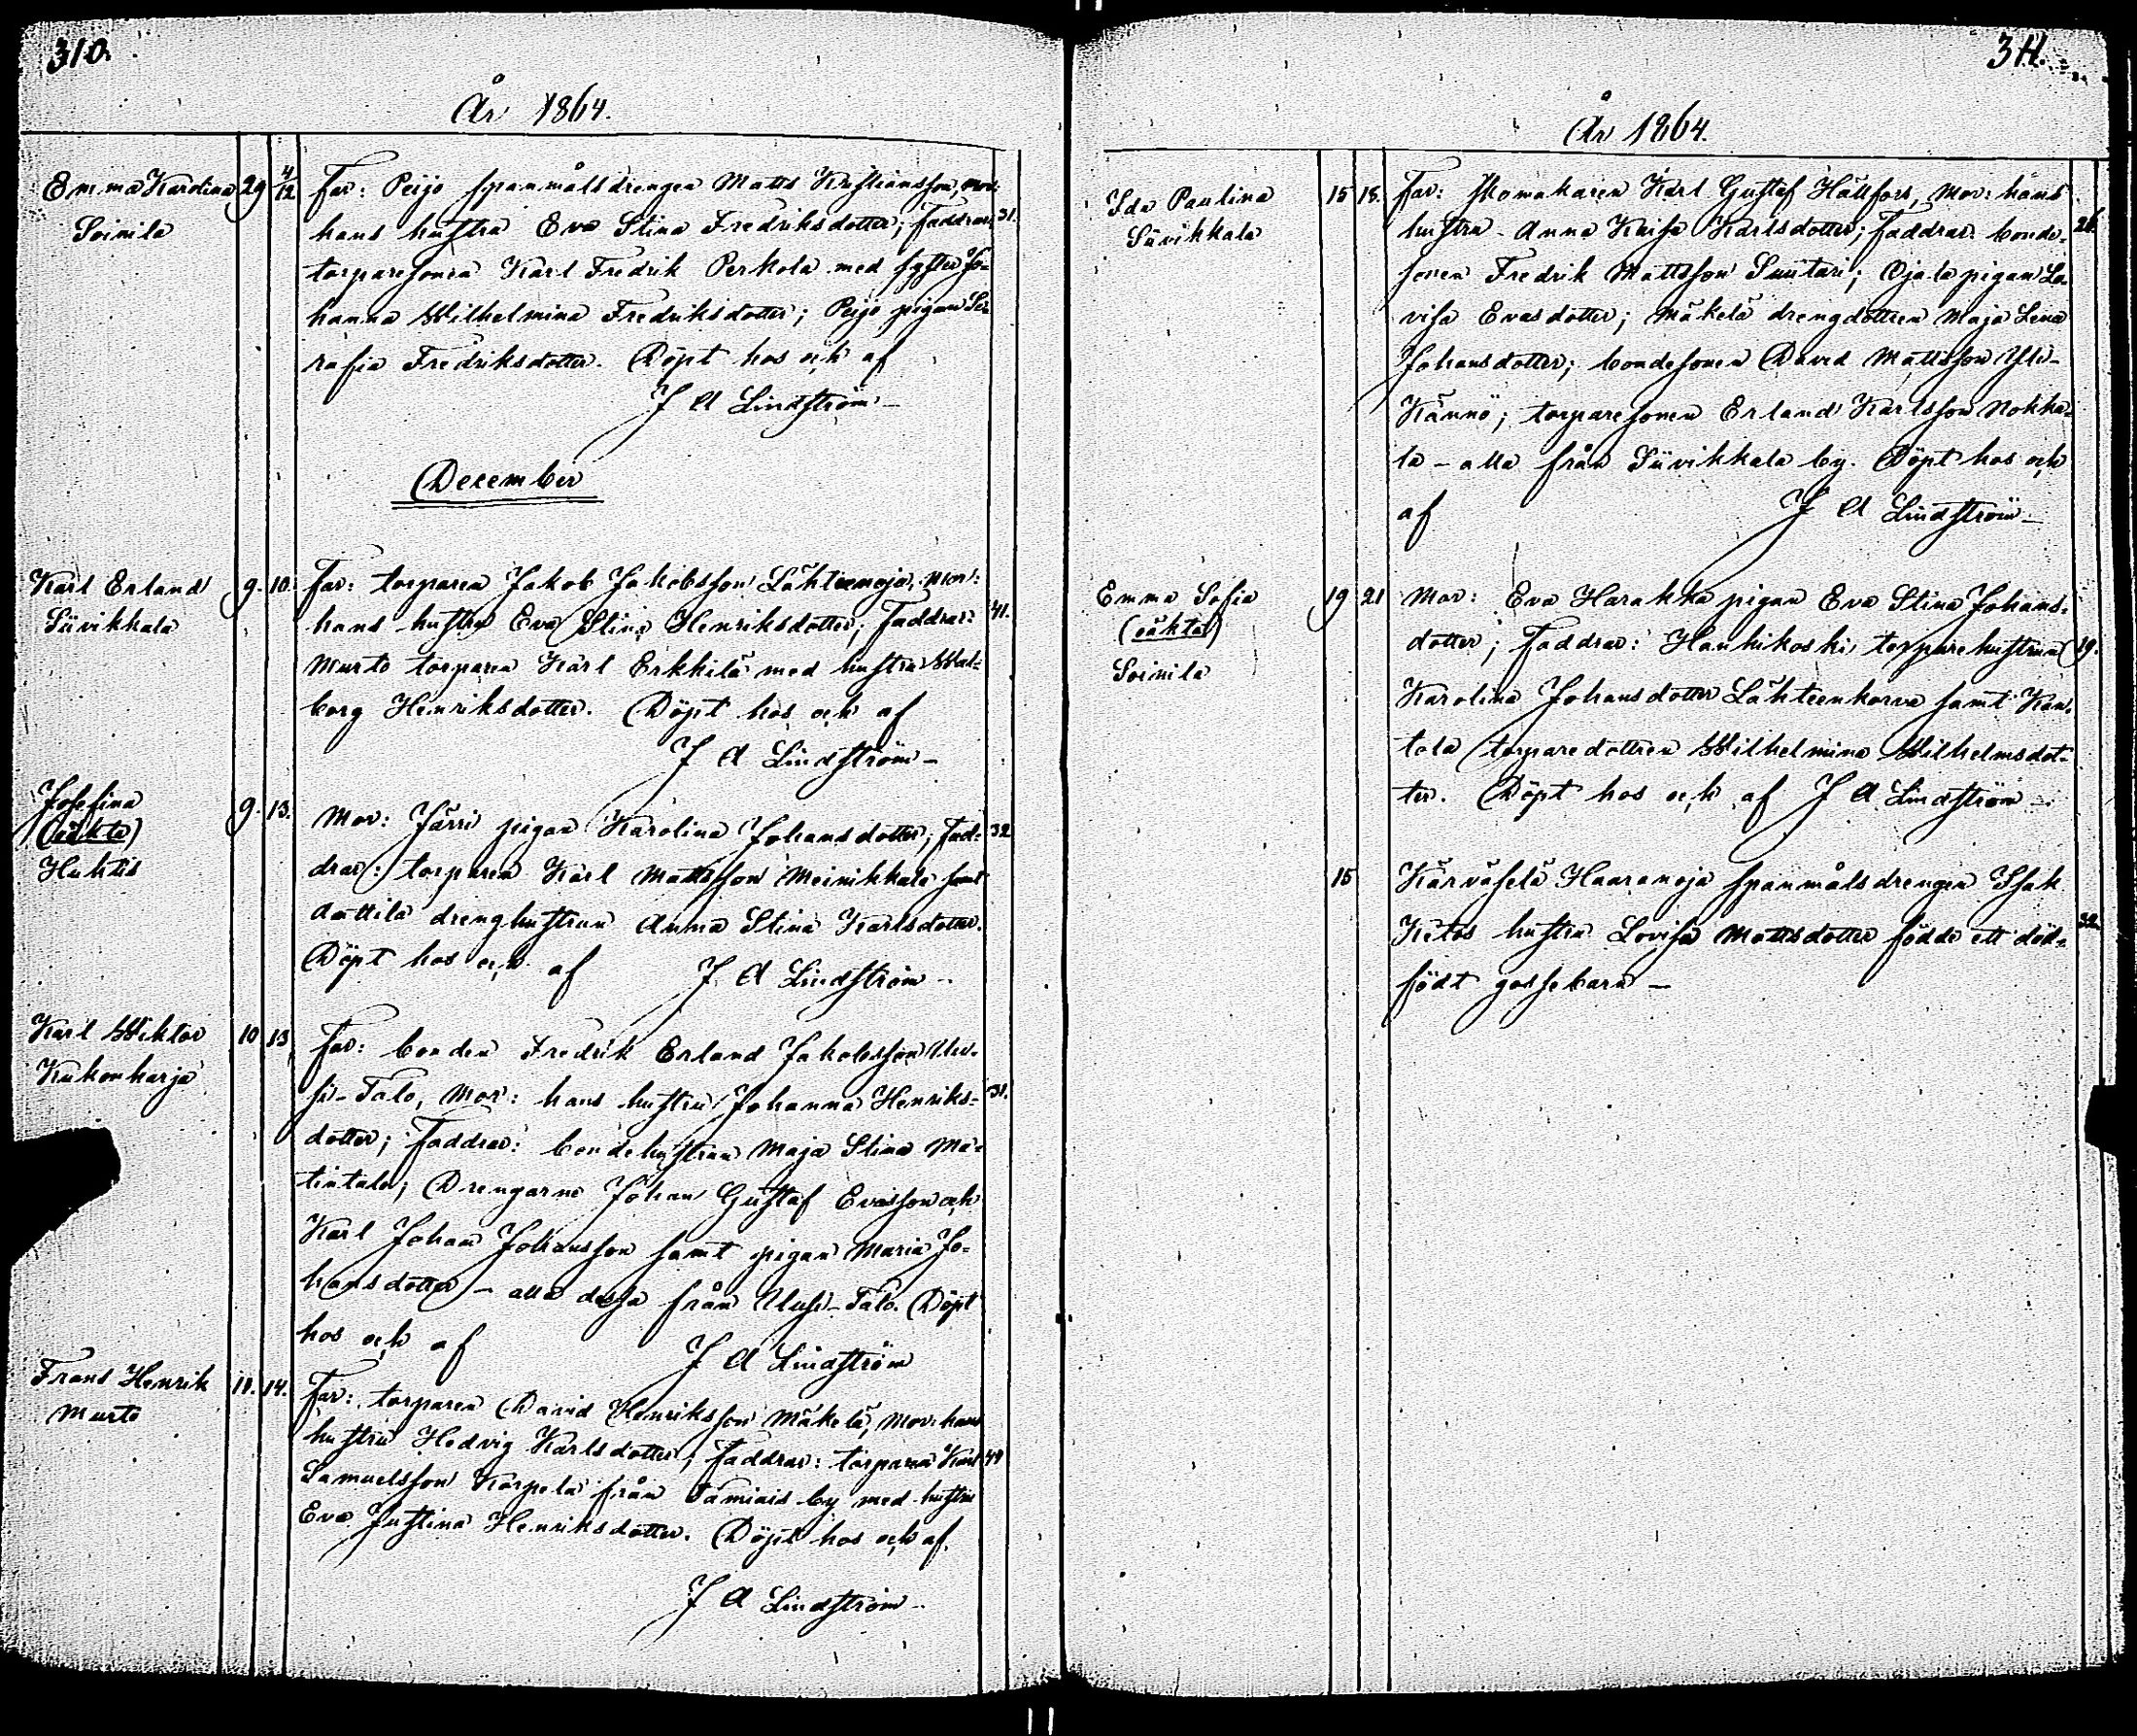 310.
År 1864.
Emma Karolina 29 4/12 Far: Peijo spanmålsdrengen Matts Kristiansson, mor:
Soinila hans hustru Eva Stina Fredriksdotter; Faddrar: 31.
torparesonen Karl Fredrik Perkola med syster Jo-
hanna Wilhelmina Fredriksdotter; Peijo pigan Se-
rafia Fredriksdotter. Döpt hos och af
J A Lindström
December
Karl Erland 9. 10. Far: torparen Jakob Jakobsson Lähteenoja, mor:
Siivikkala hans hustru Eva Stina Henriksdotter; Faddrar: 41.
Murto torparen Karl Erkkilä med hustru Wal-
borg Henriksdotter. Döpt hos och af
J A Lindström
Josefina 9. 13. Mor: Järri pigan Karolina Johansdotter; Fad- 32
(oäkta) drar: torparen Karl Mattsson Meinikkala samt
Huhtis Anttila drenghustrun Anna Stina Karlsdotter.
Döpt hos och af J A Lindström
Karl Wiktor 10 13 Far: bonden Fredrik Erland Jakobsson Uu-
Kukonharja si-Talo, Mor: hans hustru Johanna Henriks- 31.
dotter; Faddrar: bondehustrun Maja Stina Ma-
tintalo; Drengarne Johan Gustaf Evasson och
Karl Johan Johansson samt pigan Maria Jo-
hansdotter – alla dessa från Uusi-Talo. Döpt
hos och af J A Lindström
Frans Henrik 11. 14. Far: torparen David Henriksson Mäkelä, Mor: hans
Murto hustru Hedvig Karlsdotter; Faddrar: torparen Karl 49
Samuelsson Korpela från Tamiais by med hustru
Eva Justina Henriksdotter. Döpt hos och af
J A Lindström
311.
År 1864.
Ida Paulina 15 18. Far: skomakaren Karl Gustaf Hällfors, Mor: hans
Siivikkala hustru Anna Kaisa Karlsdotter; Faddrar: bonde- 26.
sonen Fredrik Mattsson Suutari; Ojala pigan Lo-
visa Evasdotter; Mäkelä drengdottren Maja Lena
Johansdotter; bondesonen David Mattsson Yli-
Kännö; torparesonen Erland Karlsson Nokka-
la – alla från Siivikkala by. Döpt hos och
af J A Lindström
Emma Sofia 19 21 Mor: Eva Harakka pigan Eva Stina Johans-
(oäkta) dotter; Faddrar: Hanhikoski torparehustrun 19.
Soinila Karolina Johansdotter Lähteenkorva samt Kan-
tola torparedottren Wilhelmina Wilhelmsdot-
ter. Döpt hos och af J A Lindström
15 Kärväselä Haaranoja spanmålsdrengen Isak
Ketos hustru Lovisa Mattsdotter födde ett död- 32.
född gossebarn –